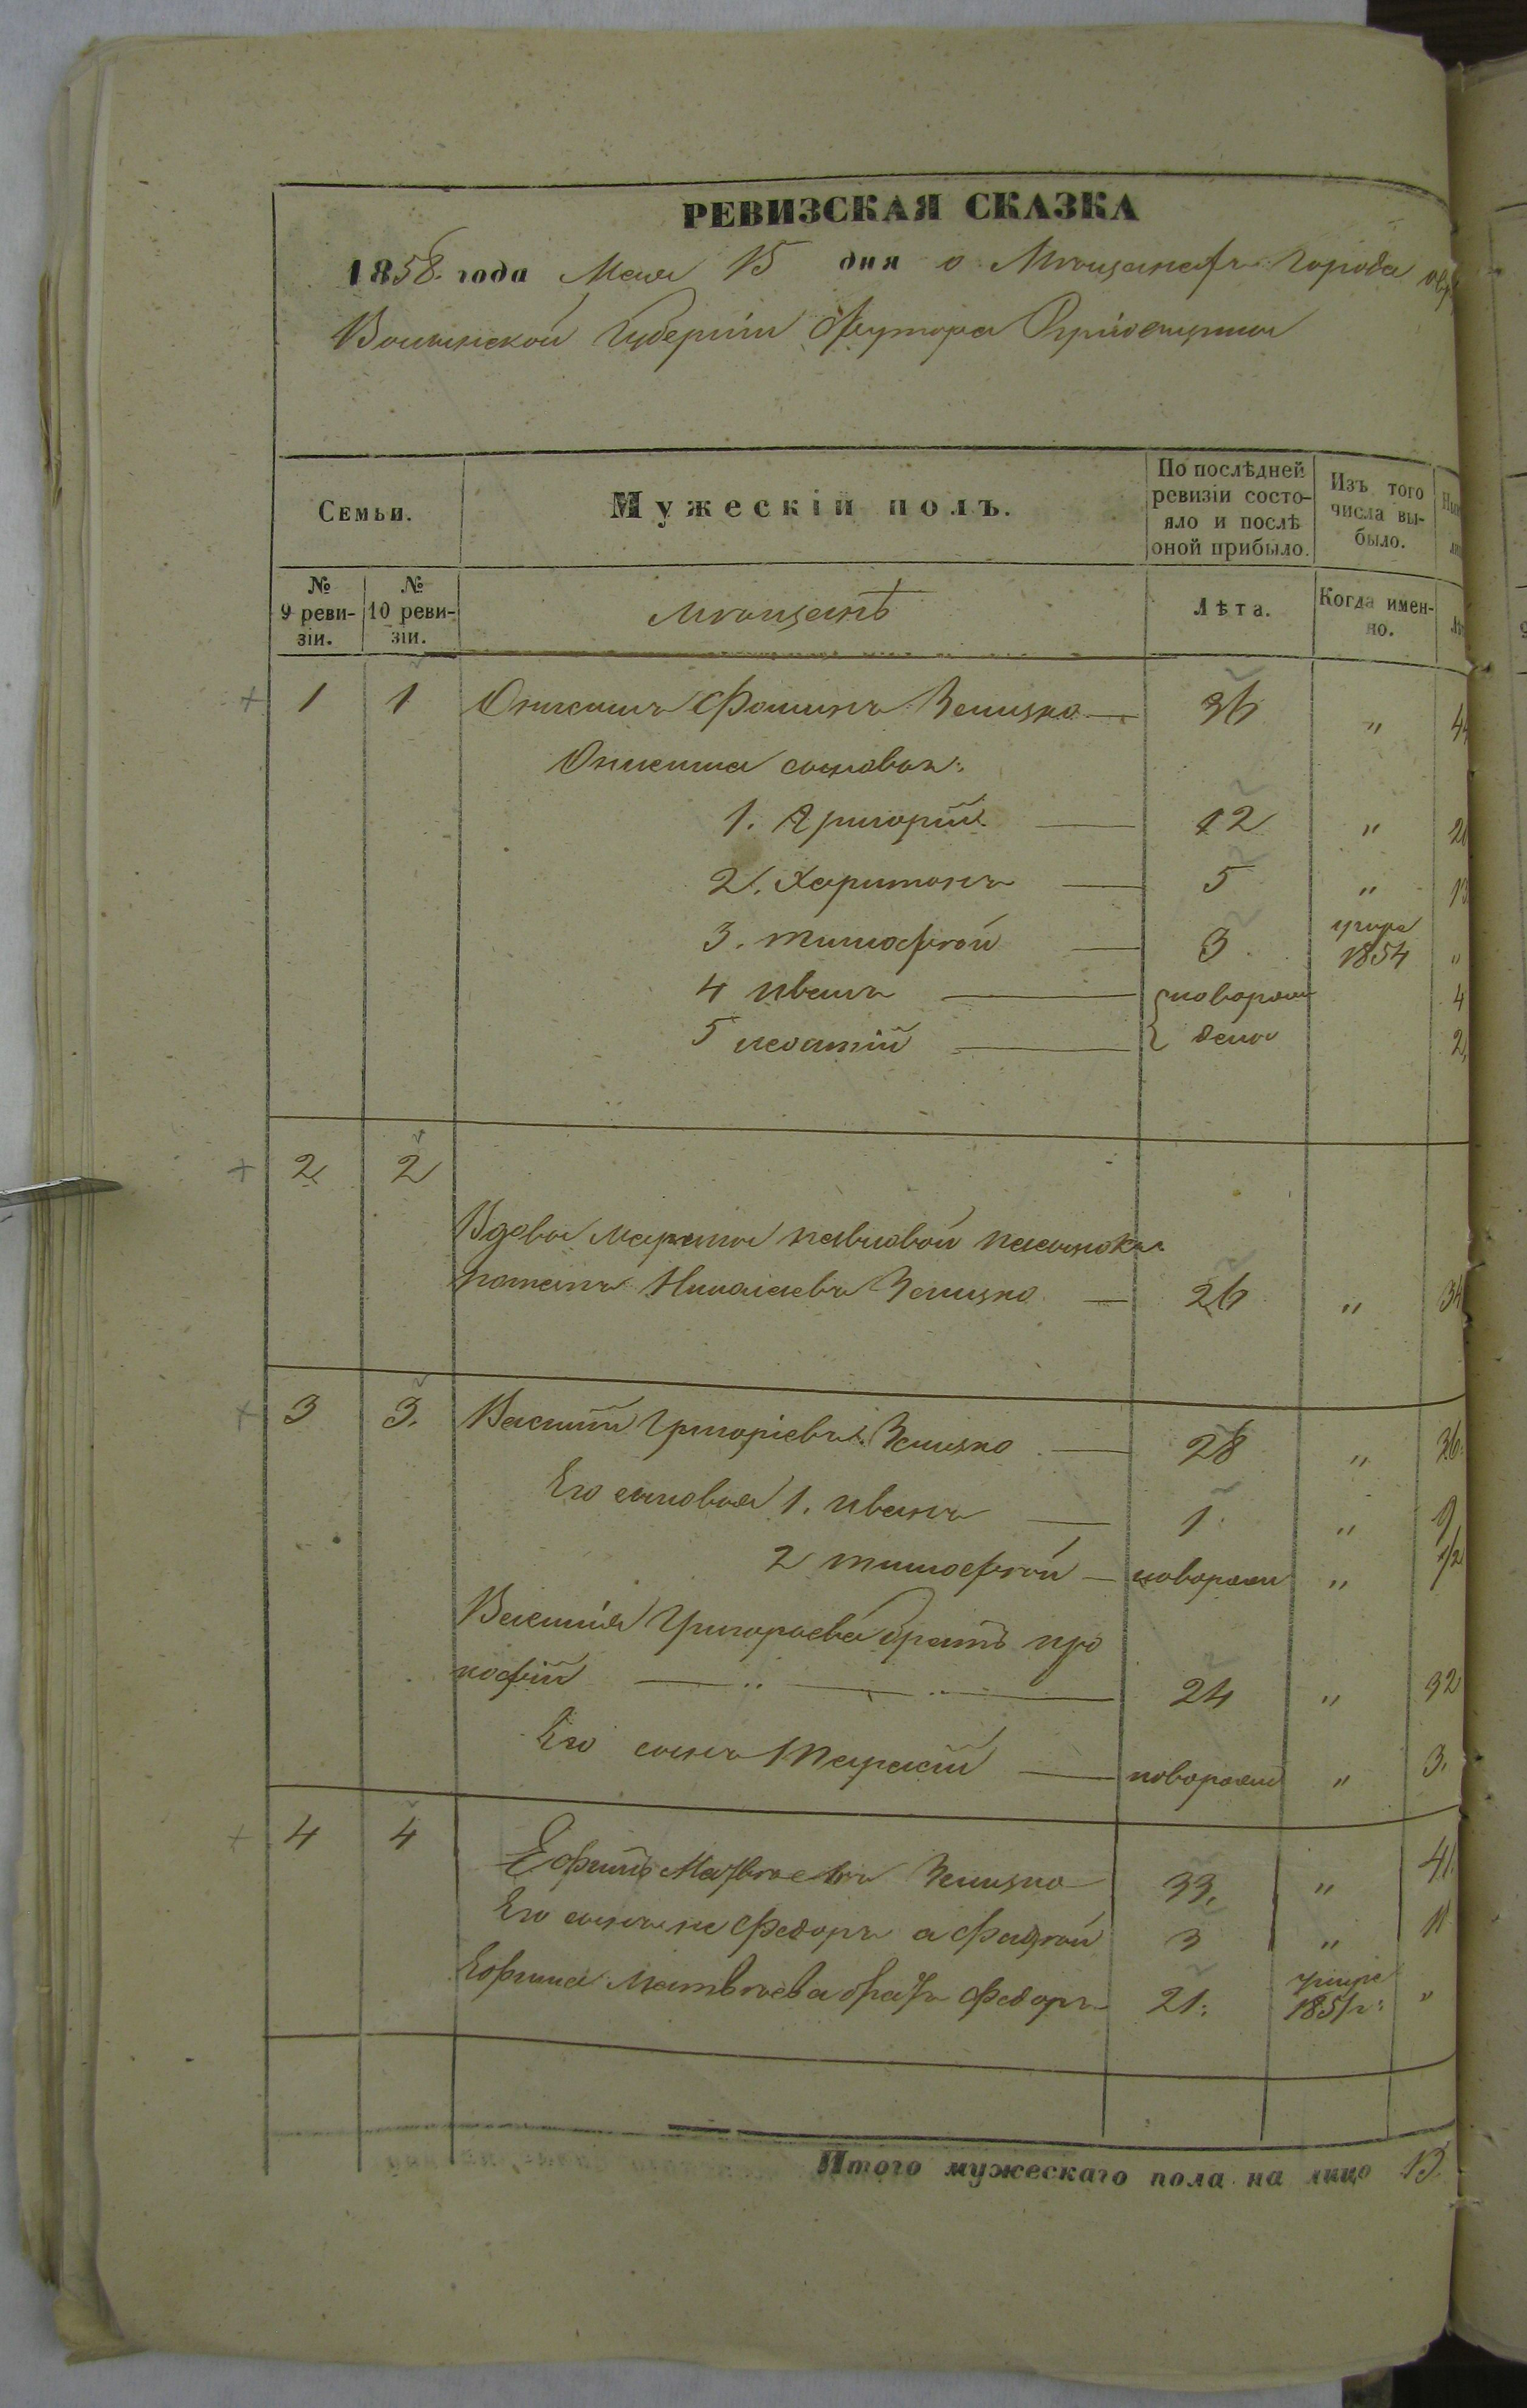 РЕВИЗСКАЯ СКАЗКА
1858 года Мая 15 дня о Мѣщанахъ города
Волынской Губерніи
Семьи.
Мужескій полъ.
По послѣдней
ревизіи состо-
яло и послѣ
оной прибыло.
Изъ того
числа вы-
было.
№
9 реви-
зіи.
№
10 реви-
зіи.
Мѣщанѣ
Лѣта.
Когда имен-
но.
1 1 Онисимъ Фоминъ 36 „
Онисима сыновья:
1. Григорій 12 „
2. Харитонъ 5 „ 13
3. Тимофѣй 3 1854 „
4 Иванъ новорож 4
5 Игнатій дено 2
2 2
Вдовы Павловой пасынокъ
Николаевъ 26 „ 34
3 3. Василій Григорiевъ 28 „ 36
Его сыновья 1. Иванъ 1 „ 9
2 Тимофѣй новорож „ 1/2
Василія Григорьева братъ Про
кофій 24 „ 32
Его сынъ новорож „ 3.
4 4
Ефимъ Матвѣевъ 33. „ 41
Его сынъ не Федоръ а Фадѣй 3 „ 11
Ефима Матвѣева братъ Федоръ 21: 1851 г: „
Итого мужескаго пола на лицо 13